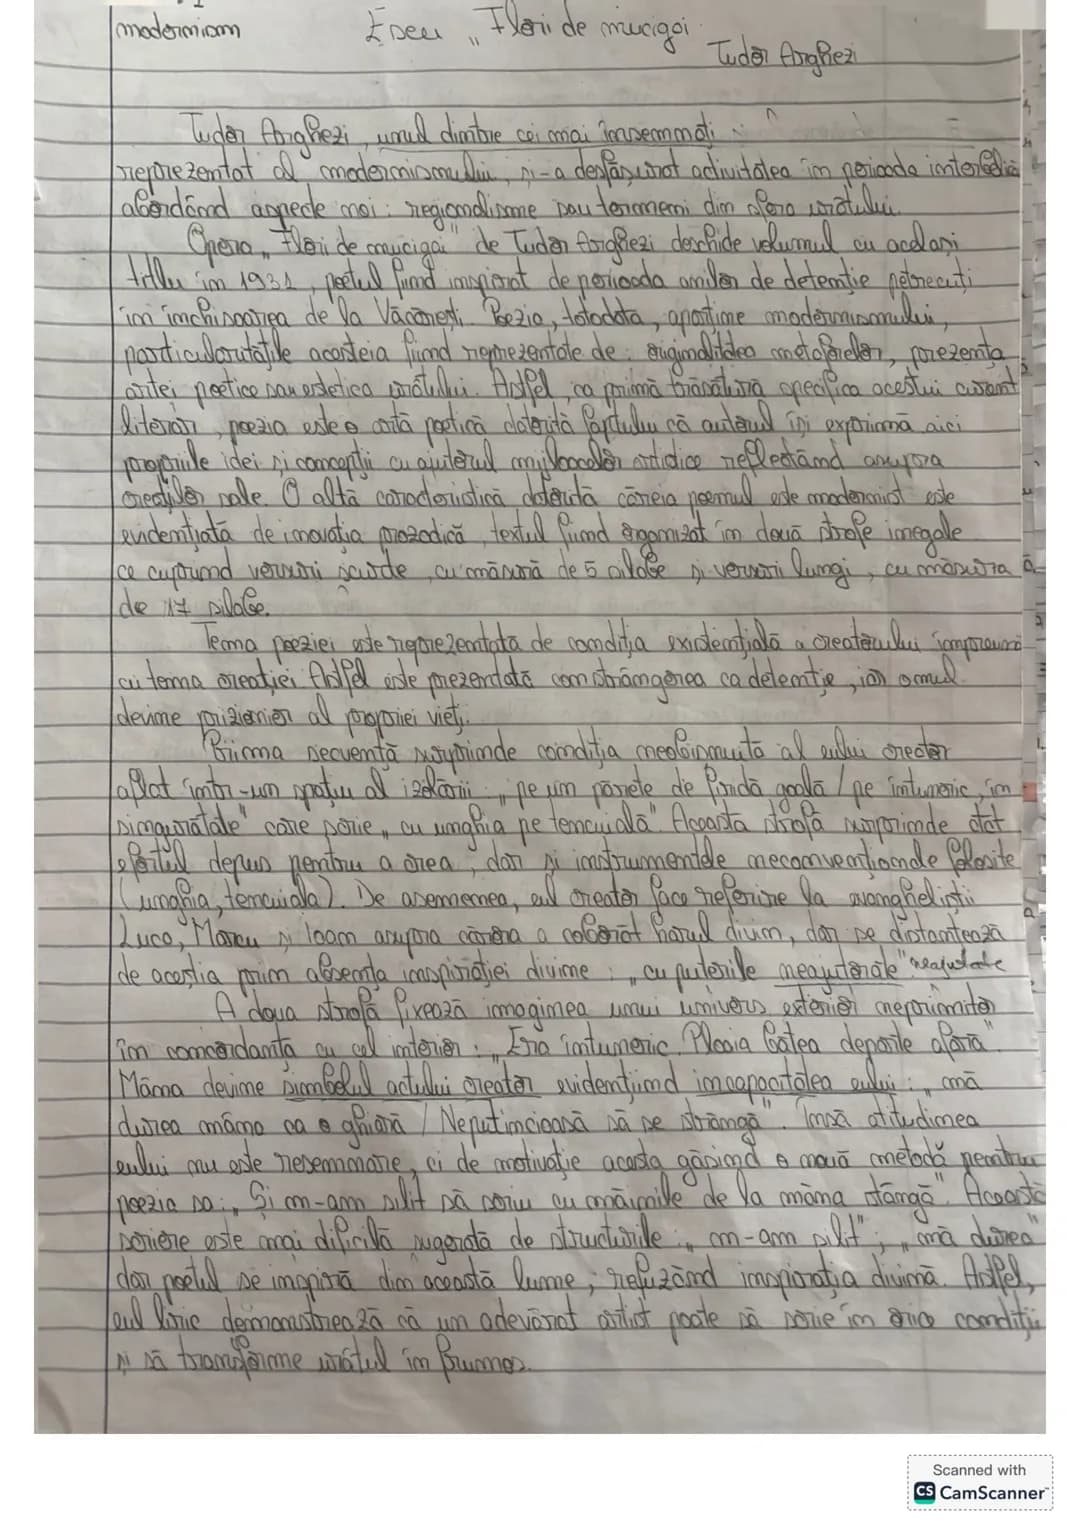 modernism
Eseu „Flori de mucigai
Tudor Arghezi
Tudor Arghezi, unul dintre cei mai însemnați
reprezentat al modernismului, și-a desfășurat activitatea în perioada interbelică
abordând aspecte noi: regionalisme sau termeni din sfera urâtului.
Opera „Flori de mucigai" de Tudor Arghezi deschide volumul cu același
titlu în 1931, poetul fiind inspirat de perioada anilor de detenție petrecuți
în închisoarea de la Văcărești. Poezia, totodată, aparține modernismului,
particularutățile acesteia fiind reprezentate de: originalitatea metaforelor, prezența
artei poetice sau estetica urâtului. Astfel, ca primă trăsătură specifica acestui curent
literar, poezia este o artă poetică datorită faptului că autorul își exprimă aici
propriile idei și concepții cu ajutorul mijloacelor artistice reflectând asupra
creațiilor sale. O altă caracteristică datorită căreia poemul este modernist este
evidențiată de inovația prozodică, textul fiind organizat în două strofe inegale
ce cuprind versuri scurte, cu măsură de 5 silabe și versuri lungi, cu măsura
de 17 silabe.
Tema poeziei este reprezentată de condiția existențială a creatorului împreună
cu tema creației. Astfel este prezentată constrângerea ca detenție, iar omul
devine prizionier al propriei vieți.
Prima secvență surprinde condiția neobișnuită al eului creator
aflat într-un spațiu al izolării: „pe un părete de firidă goală / pe întuneric, în
singurătate" care scrie „cu unghia pe tencuială". Aceasta strofă surprinde atât
efortul depus pentru a crea, dar și instrumentele neconvenționale folosite
(unghia, tencuiala). De asemenea, eul creator face referire la evangheliștii
Luca, Marcu și Ioan asupra cărora a coborât harul divin, dar se distantează
de aceștia prin absența inspirației divine: „cu puterile neajutorate" neajutate
A doua strofă fixează imaginea unui univers exterior neprimitor
în concordanță cu cel interior: „Era întuneric. Ploaia bătea departe afară"
Mâna devine simbolul actului creator evidențiind incapacitatea eului: „mă
durea mâna ca o ghiară / Neputincioasă să se strângă". Însă atitudinea
eului nu este resemnare, ci de motivație acesta găsind o nouă metodă pentru
poezia sa: „Și m-am silit să scriu cu mâinile de la mâna stângă". Această
scriere este mai dificilă sugerată de structurile: „m-am silit"; „mă durea"
dar poetul se inspiră din această lume, refuzând inspirația divină. Astfel,
eul liric demonstrează că un adevărat artist poate să scrie în orice condiții
și să transforme urâtul în frumos.
Scanned with
CS CamScanner